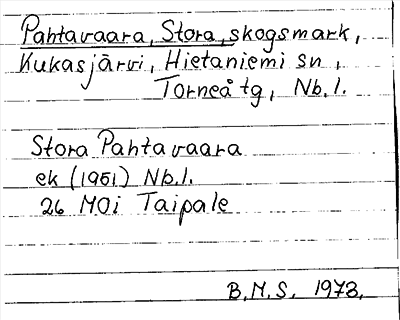 Pahtavaara, Stora, skogsmark,
Kukasjärvi, Hietaniemi sn,
Torneå tg, Nb.l.
Stora Pahtavaara
ek (1961) Nb.l.
26 MOi Taipale
B.M.S. 1973.